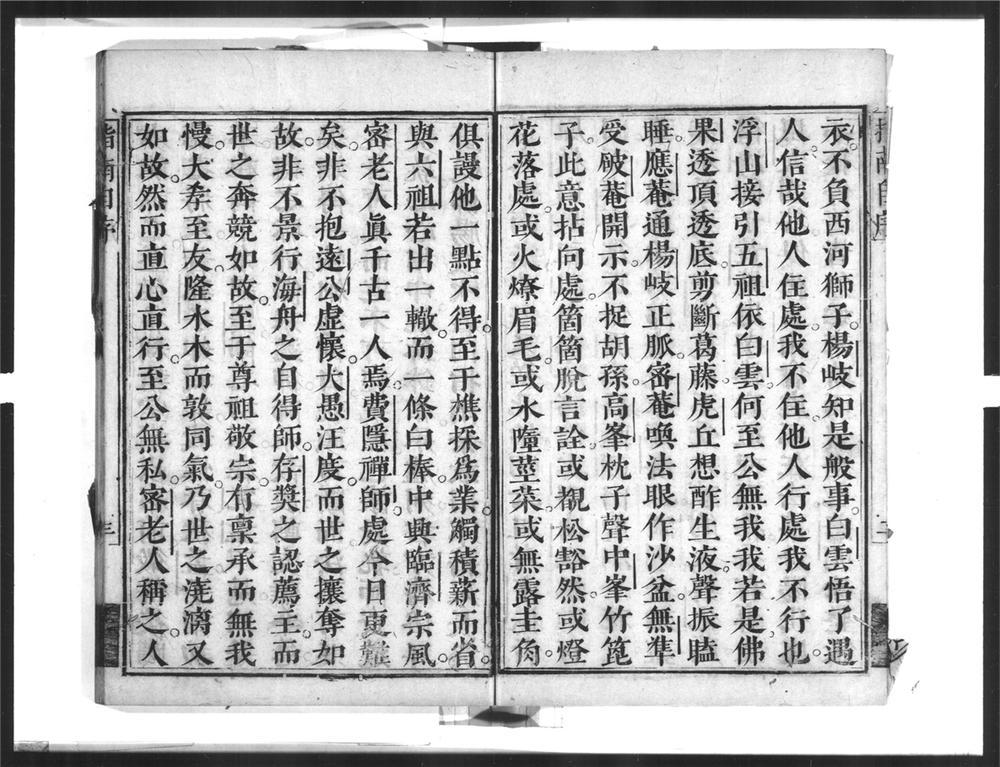 衣不負西河獅子楊岐知是般事白雲悟了遇
人信哉他人住處我不住他人行處我不行也
浮山接引五祖依白雲何至公無我我若是佛
果透頂透底剪斷葛藤虎丘想酢生液聲振瞌
睡應菴通楊岐正脈密菴喚法眼作沙盆無準
受破菴開示不捉胡孫高峯枕子聲中峯竹篦
子此意拈向處箇箇脫言詮或覩松豁然或燈
花落處或火燎眉毛或水墮莖菜或無露圭角
俱謾他一點不得至于樵採爲業觸積薪而省
與六祖若出一轍而一條白棒中興臨濟宗風
密老人眞千古一人焉費隱禪師處今日更難
矣非不抱遠公虛懷大愚汪度而世之攘奪如
故非不景行海舟之自得師存獎之認薦主而
世之奔競如故至于尊祖敬宗有稟承而無我
慢大孝至友隆水木而敦同氣乃世之澆漓又
如故然而直心直行至公無私密老人稱之人